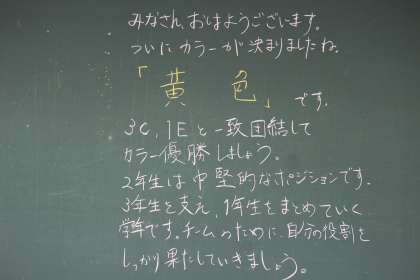 みなさん、おはようございます。
ついにカラーが決まりましたね。
「黄色」です。
3C, 1Eと一致団結して
カラー優勝しましょう。
2年生は中堅的なポジションです。
3年生を支え、1年生をまとめていく
学年です。チームのために、自分の役割を
しっかり果たしていきましょう。